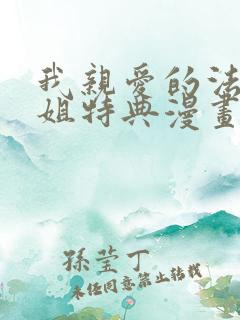 我親愛的法
姐特典漫畫
孫莹丁
未经同意禁止转载